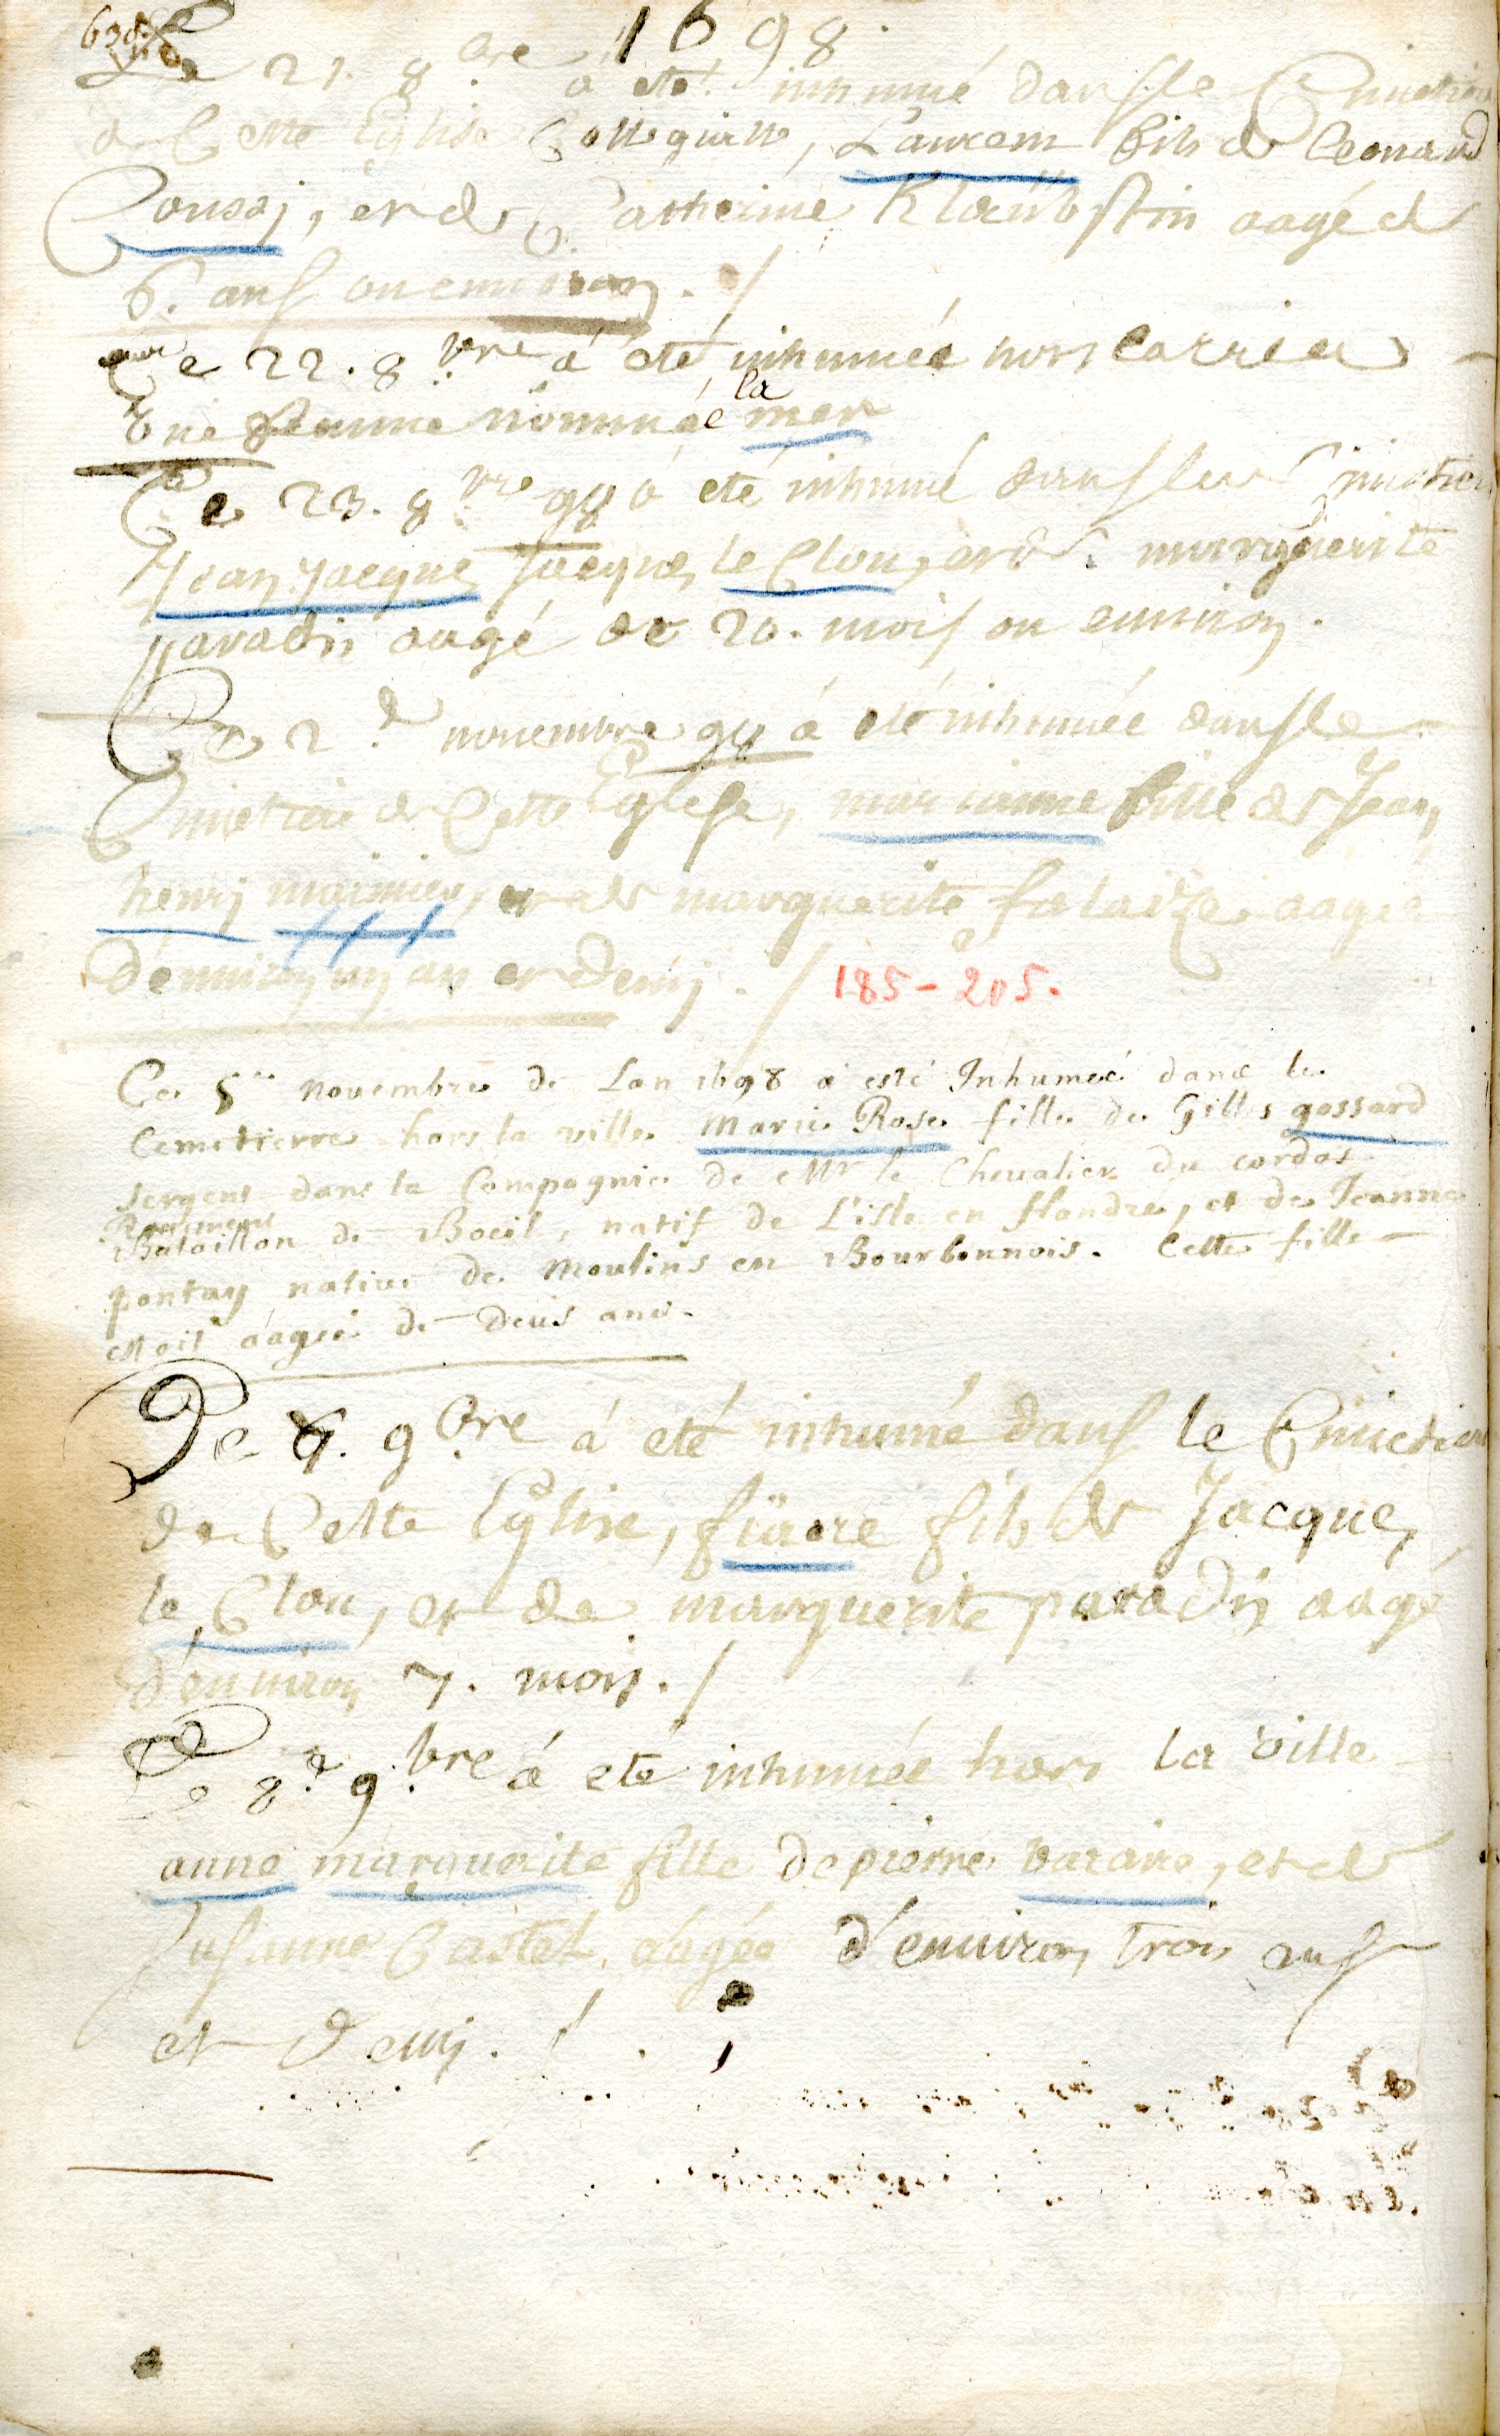 1698.
Le 21. 8bre a eté inhumé dans le Cimetiere
de Cette Eglise Collegialle, Laurent fils de leonard
Consaj, et de Catherine Klaubstin aagé de
6. ans ou environ. /
Le 22. 8bre á eté inhumée hors Carriere
Une femme nommée la mer
Ce 23. 8bre 98 á eté inhumé dans leur Cimetier
Jean Jacque Jacques le Clou, et de marguerite
paradis aagé de 20. mois ou environ.
Ce 2.d novembre 98 á eté inhumée dans le
Cimetiere de Cette Eglise, marianne fille de Jean
henrj munier, et de marguerite falaize aagée
d'environ un an et demj. / 185-205.
Ce 5me Novembre de Lan 1698 a esté Inhumeé dans le
Cemetierre hors la ville Marie Rose fille de Gilles gossard
sergent dans la Compagnie de Mr le Chevalier du cordos
Regiment
Bataillon de Boeil, natif de L'isle en flandre, et de Jeanne
pontay native de Moulins en Bourbonnois. Cette fille
estoit aageé de Deus ans.
De 6. 9bre á eté inhumé dans le Cimetiere
de Cette Eglise, fiacre fils de Jacque
le Clou, et de marguerite paradis aagé
d'environ 7. mois. /
Le 8.e 9.bre á eté inhumée hors la ville
anne marguerite fille de pierre varaire, et de
Susanne Castel, aagée d'environ trois ans
et demj.